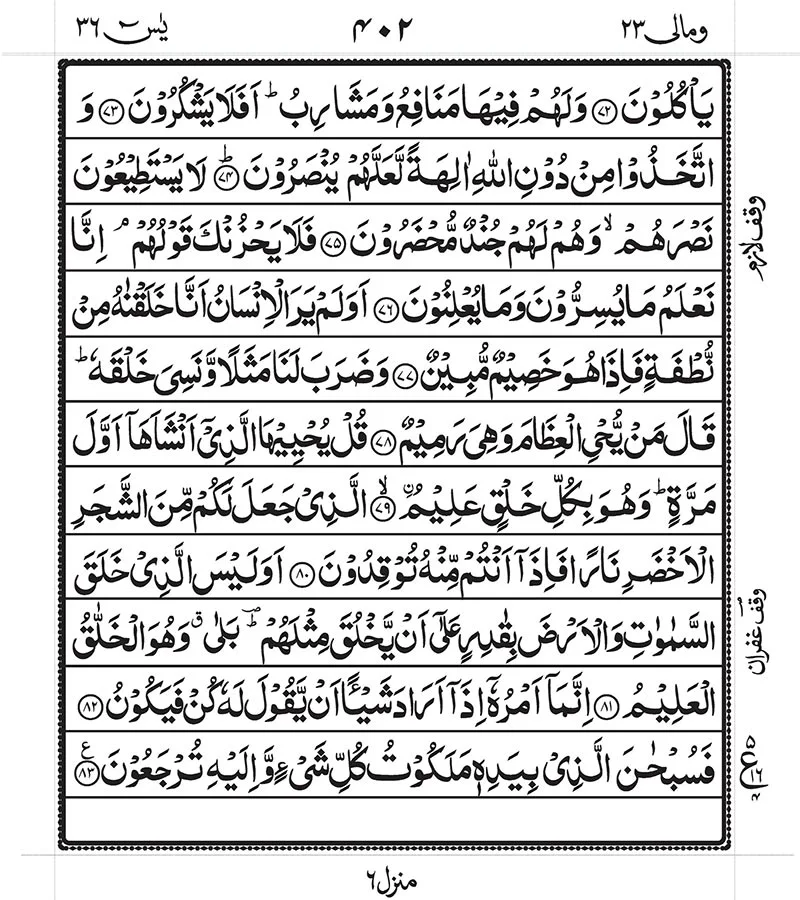 ومالی ٢٣
٤٠٢
یٰس ٣٦
يَاْكُلُوْنَ ﴿٧٢﴾ وَلَهُمْ فِيْهَا مَنَافِعُ وَمَشَارِبُ ؕ اَفَلَا يَشْكُرُوْنَ ﴿٧٣﴾ وَ
اتَّخَذُوْا مِنْ دُوْنِ اللّٰهِ اٰلِهَةً لَّعَلَّهُمْ يُنْصَرُوْنَ ؕ﴿٧٤﴾ لَا يَسْتَطِيْعُوْنَ
نَصْرَهُمْ ۙ وَهُمْ لَهُمْ جُنْدٌ مُّحْضَرُوْنَ ﴿٧٥﴾ فَلَا يَحْزُنْكَ قَوْلُهُمْ ۘ اِنَّا
نَعْلَمُ مَا يُسِرُّوْنَ وَمَا يُعْلِنُوْنَ ﴿٧٦﴾ اَوَلَمْ يَرَ الْاِنْسَانُ اَنَّا خَلَقْنٰهُ مِنْ
نُّطْفَةٍ فَاِذَا هُوَ خَصِيْمٌ مُّبِيْنٌ ﴿٧٧﴾ وَضَرَبَ لَنَا مَثَلًا وَّنَسِىَ خَلْقَهٗ ؕ
قَالَ مَنْ يُّحْىِ الْعِظَامَ وَهِىَ رَمِيْمٌ ﴿٧٨﴾ قُلْ يُحْيِيْهَا الَّذِىْۤ اَنْشَاَهَاۤ اَوَّلَ
مَرَّةٍ ؕ وَهُوَ بِكُلِّ خَلْقٍ عَلِيْمُ ۙ﴿٧٩﴾ اۨلَّذِىْ جَعَلَ لَكُمْ مِّنَ الشَّجَرِ
الْاَخْضَرِ نَارًا فَاِذَاۤ اَنْتُمْ مِّنْهُ تُوْقِدُوْنَ ﴿٨٠﴾ اَوَلَيْسَ الَّذِىْ خَلَقَ
السَّمٰوٰتِ وَالْاَرْضَ بِقٰدِرٍ عَلٰٓى اَنْ يَّخْلُقَ مِثْلَهُمْ ؕؔ بَلٰى ۗ وَهُوَ الْخَلّٰقُ
الْعَلِيْمُ ﴿٨١﴾ اِنَّمَاۤ اَمْرُهٗۤ اِذَاۤ اَرَادَ شَيْـًٔا اَنْ يَّقُوْلَ لَهٗ كُنْ فَيَكُوْنُ ﴿٨٢﴾
فَسُبْحٰنَ الَّذِىْ بِيَدِهٖ مَلَكُوْتُ كُلِّ شَىْءٍ وَّاِلَيْهِ تُرْجَعُوْنَ ﴿٨٣﴾ ع
وقف لازم
وقف غفران
٥
ع
١٦
٤
منزل ٦